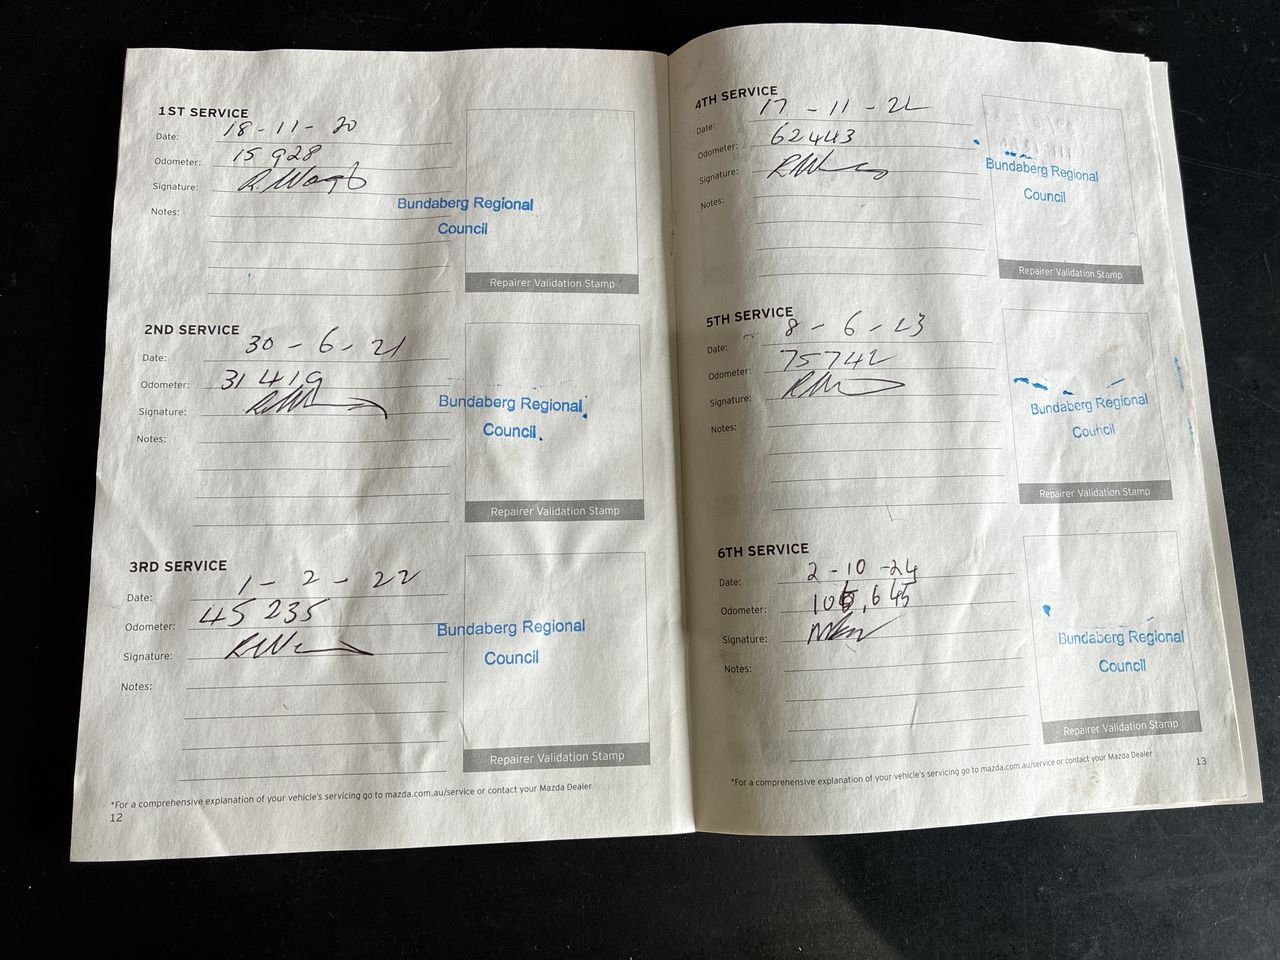 1ST SERVICE
Date: 18-11-20
Odometer: 15928
Signature:
Notes:
Bundaberg Regional
Council
Repairer Validation Stamp
2ND SERVICE
Date: 30-6-21
Odometer: 31419
Signature:
Notes:
Bundaberg Regional
Council
Repairer Validation Stamp
3RD SERVICE
Date: 1-2-22
Odometer: 45235
Signature:
Notes:
Bundaberg Regional
Council
Repairer Validation Stamp
*For a comprehensive explanation of your vehicle's servicing go to mazda.com.au/service or contact your Mazda Dealer
12
4TH SERVICE
Date: 17-11-22
Odometer: 62443
Signature:
Notes:
Bundaberg Regional
Council
Repairer Validation Stamp
5TH SERVICE
Date: 8-6-23
Odometer: 75742
Signature:
Notes:
Bundaberg Regional
Council
Repairer Validation Stamp
6TH SERVICE
Date: 2-10-24
Odometer:
Signature:
Notes:
Bundaberg Regional
Council
Repairer Validation Stamp
*For a comprehensive explanation of your vehicle's servicing go to mazda.com.au/service or contact your Mazda Dealer
13